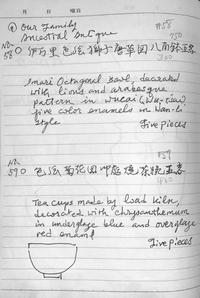 月 日 曜日
① Our Family
Ancestral Antique
#58
NO.
580 伊万里 色絵 獅子唐草図 八角鉢 五客
750
300
Imari Octagonal Bowl, decorated
with lions and arabesque
pattern in wucai (Wu-ts'ai)
five color enamels in Wan-li
style
Five pieces
#59
NO.
590 色絵 菊花図 煎茶碗 五客
Tea cups made by load kiln,
decorated with chrysanthemum
in underglaze blue and overglaze
red enamel
Five pieces